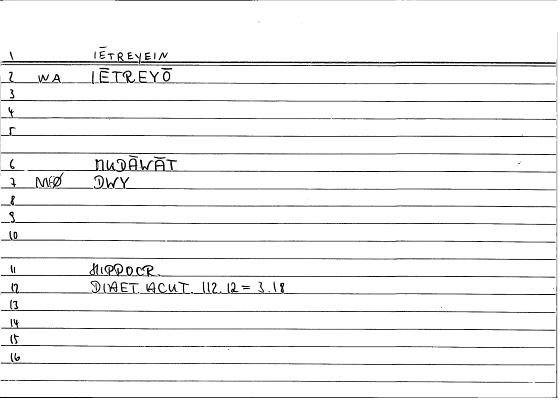 1 IĒTREYEIN
2 WA IĒTREYŌ
3
4
5
6 MUDĀWĀT
7 MEØ DWY
8
9
10
11 HIPPOCR.
12 DIAET. ACUT. 112.12 = 3.18
13
14
15
16